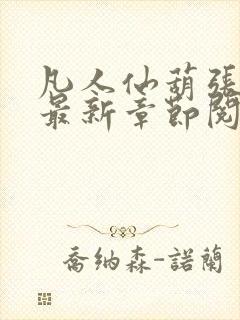 凡人仙葫張
最新章節閱
喬納森-諾蘭